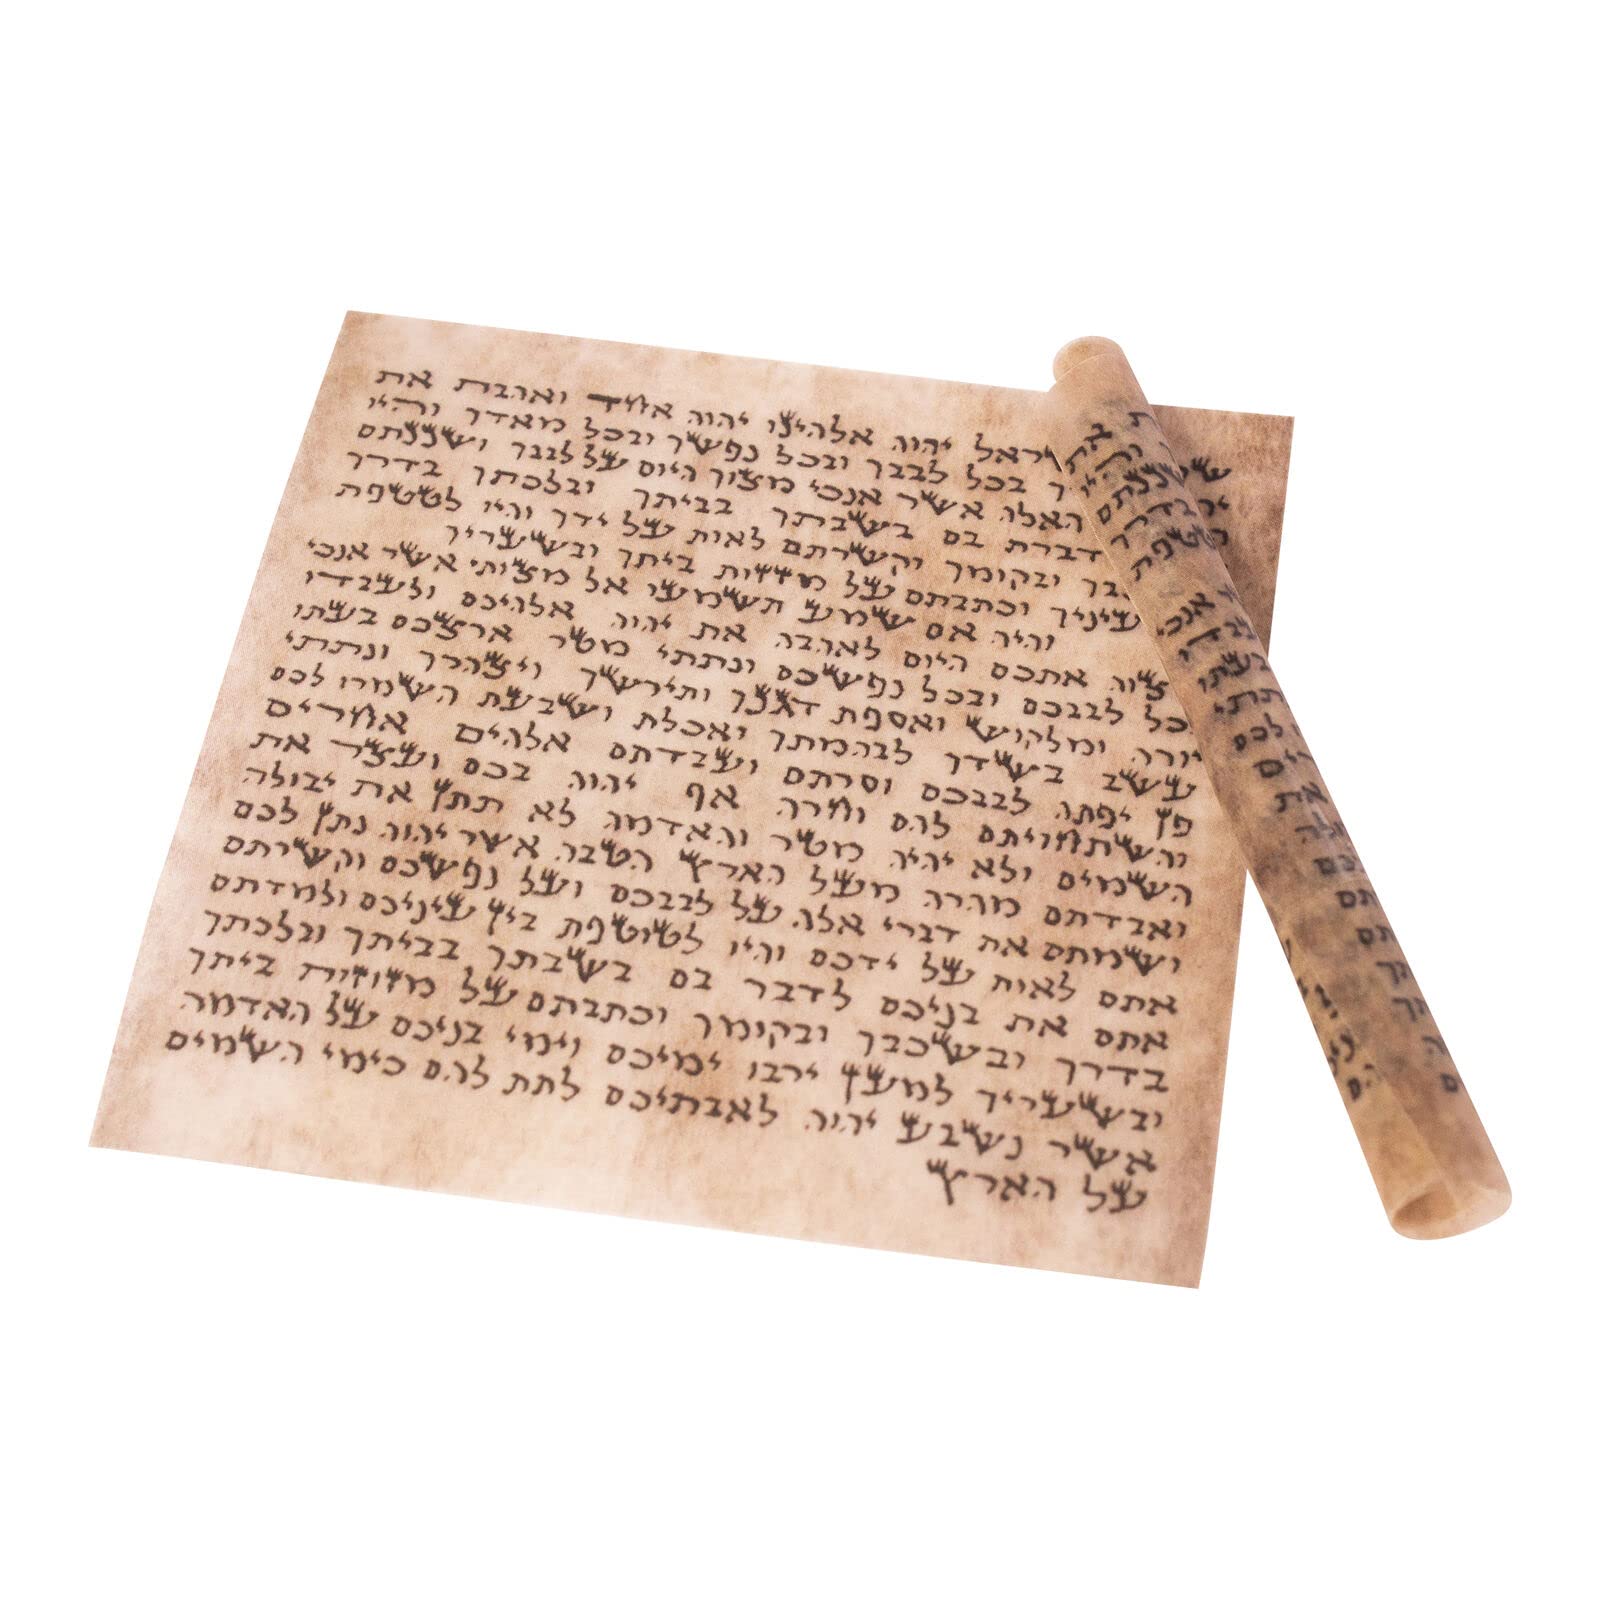 ישראל יהוה אלהינו יהוה אחד ואהבת את
בכל לבבך ובכל נפשך ובכל מאדך והיו
האלה אשר אנכי מצוך היום על לבבך ושננתם
דברת בם בשבתך בביתך ובלכתך בדרך
ובקומך וקשרתם לאות על ידך והיו לטטפת
עיניך וכתבתם על מזזות ביתך ובשעריך
והיה אם שמע תשמעו אל מצותי אשר אנכי
צוה אתכם היום לאהבה את יהוה אלהיכם ולעבדו
כל לבבכם ובכל נפשכם ונתתי מטר ארצכם בעתו
יורה ומלקוש ואספת דגנך ותירשך ויצהרך ונתתי
עשב בשדך לבהמתך ואכלת ושבעת השמרו לכם
פן יפתה לבבכם וסרתם ועבדתם אלהים אחרים
והשתחויתם להם וחרה אף יהוה בכם ועצר את
השמים ולא יהיה מטר והאדמה לא תתן את יבולה
ואבדתם מהרה מעל הארץ הטבה אשר יהוה נתן לכם
ושמתם את דברי אלה על לבבכם ועל נפשכם וקשרתם
אתם לאות על ידכם והיו לטוטפת בין עיניכם ולמדתם
אתם את בניכם לדבר בם בשבתך בביתך ובלכתך
בדרך ובשכבך ובקומך וכתבתם על מזוזות ביתך
ובשעריך למען ירבו ימיכם וימי בניכם על האדמה
אשר נשבע יהוה לאבתיכם לתת להם כימי השמים
על הארץ